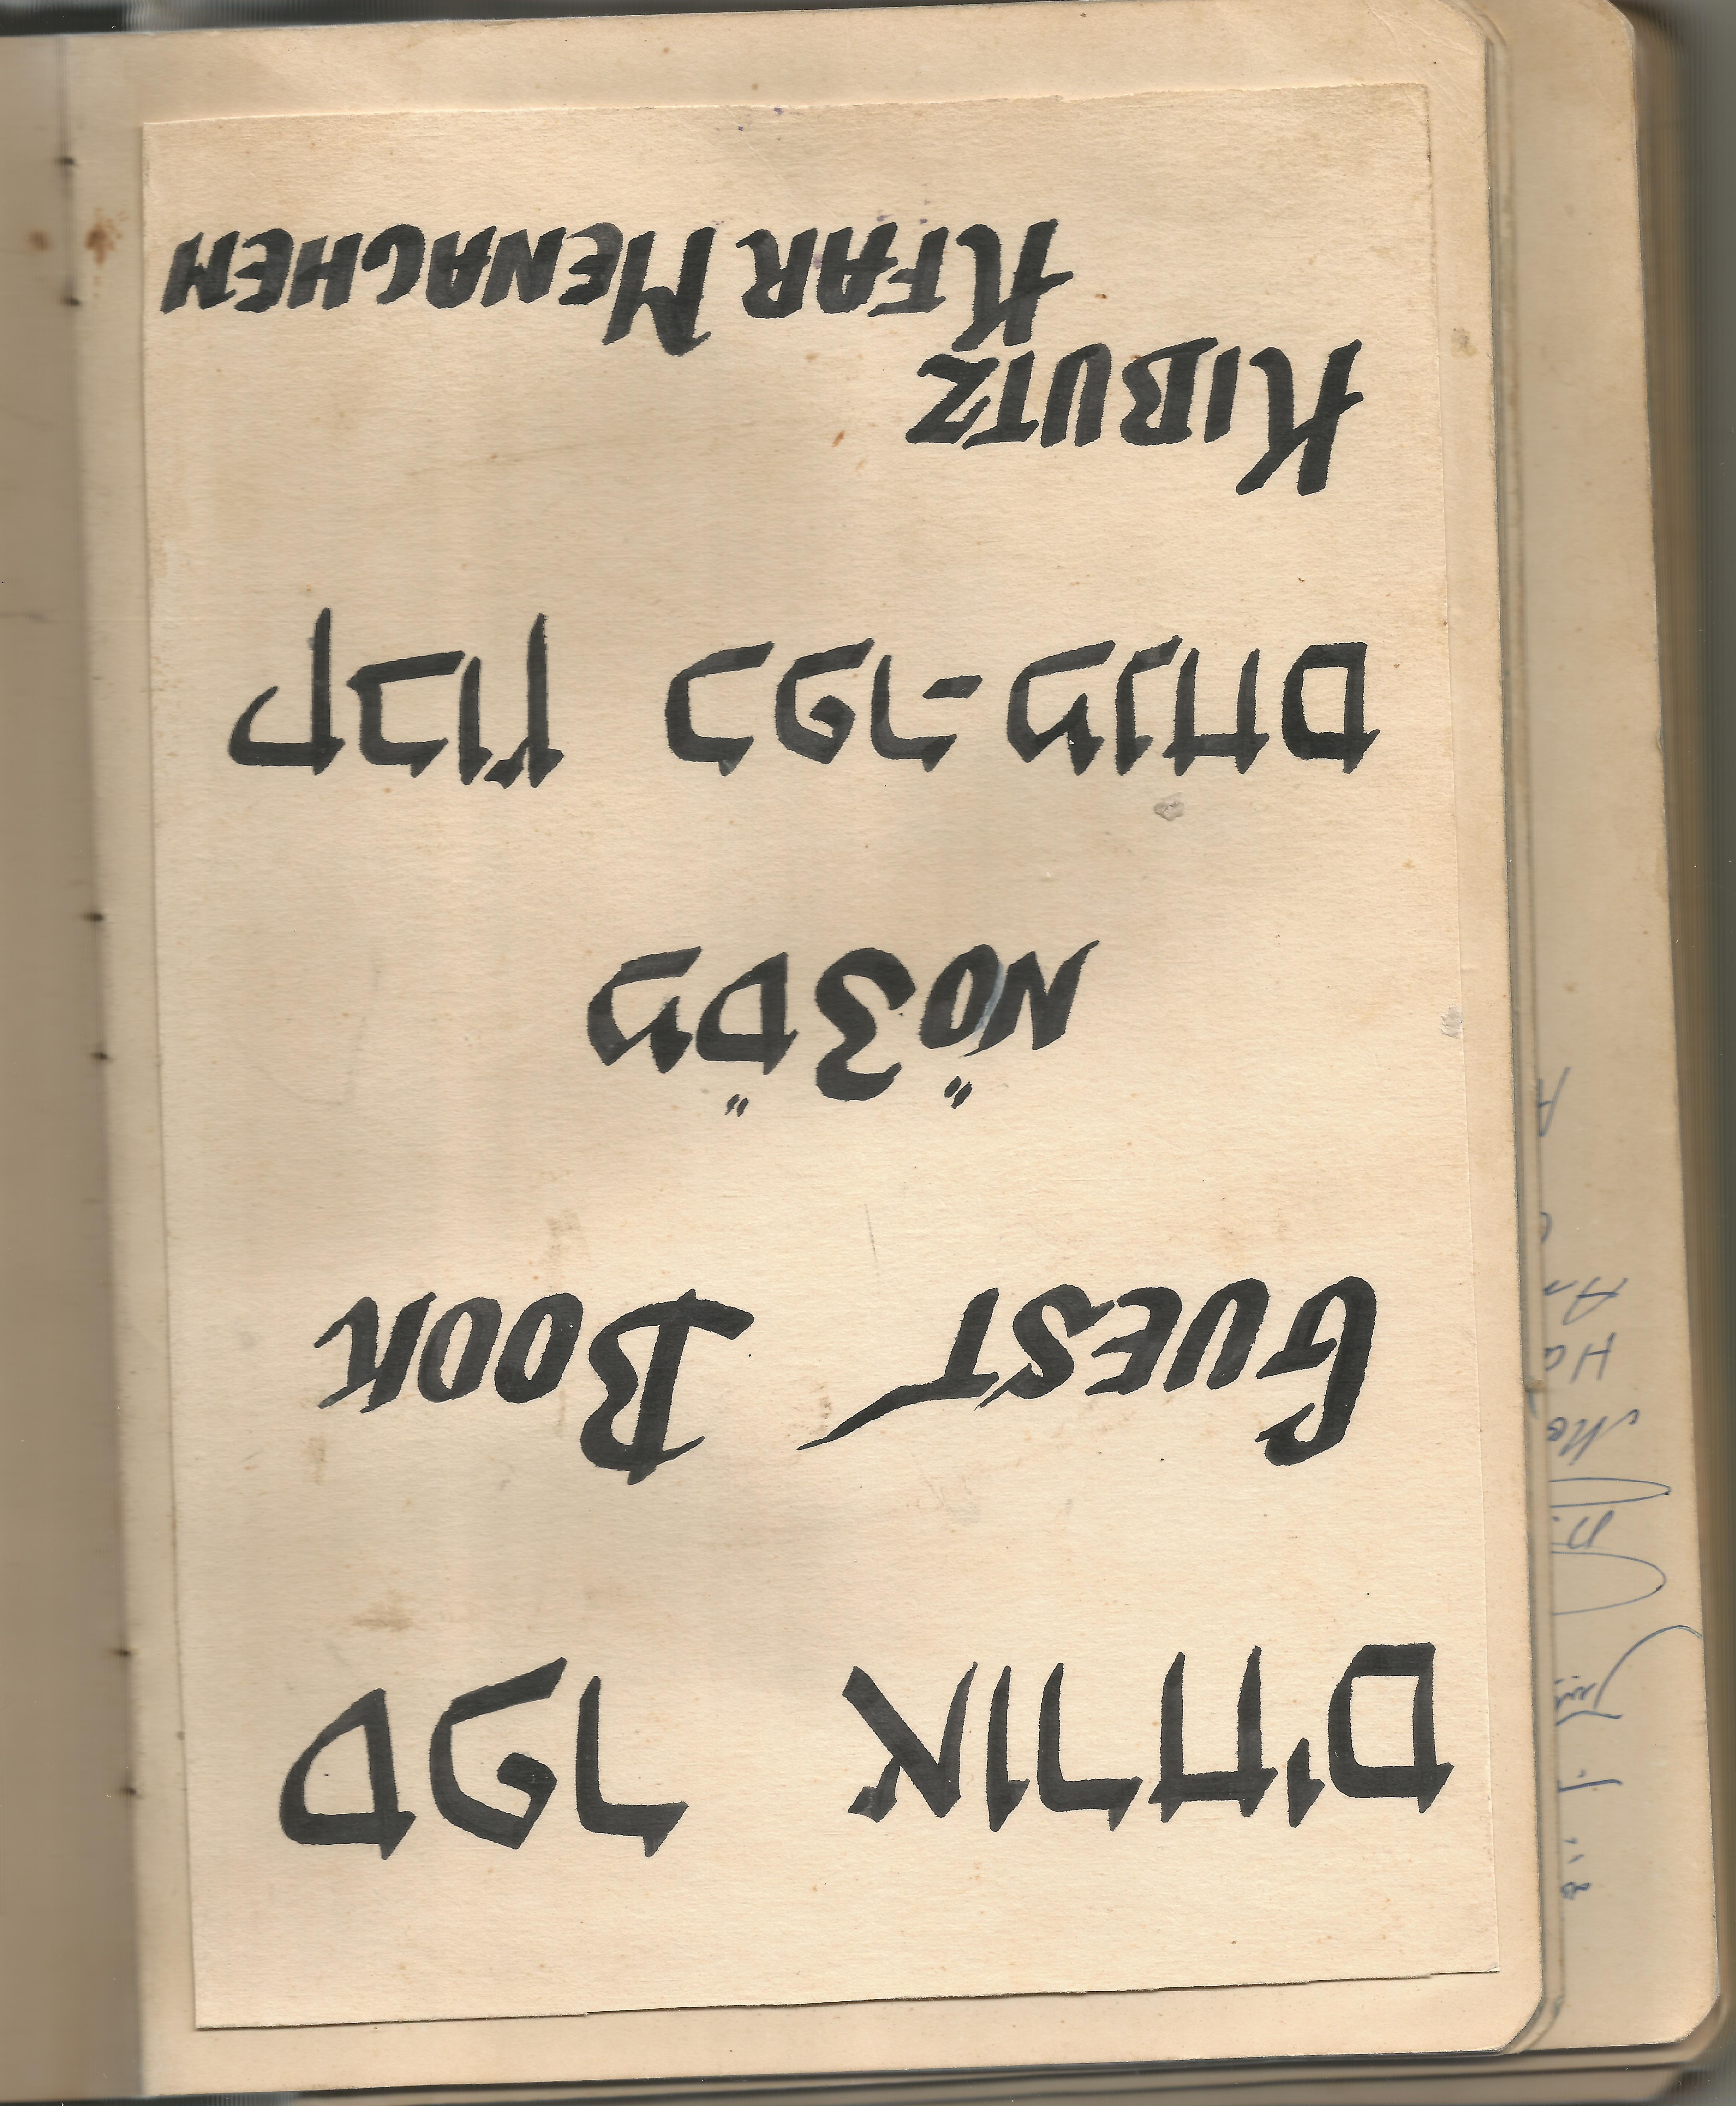 ספר אורחים
GUEST BOOK
NO" 3 מס"
קבוץ כפר-מנחם
KIBUTZ
KFAR MENACHEM